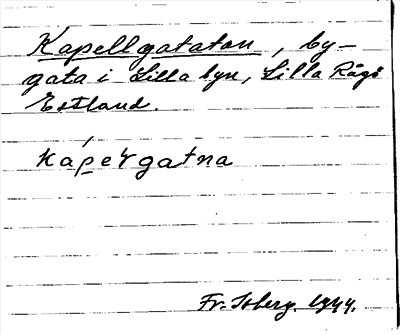 Kapellgatatan, by-
gata i Lilla byn, Lilla Rågö
Estland.
kápergatna
Fr. Isberg. 1944.